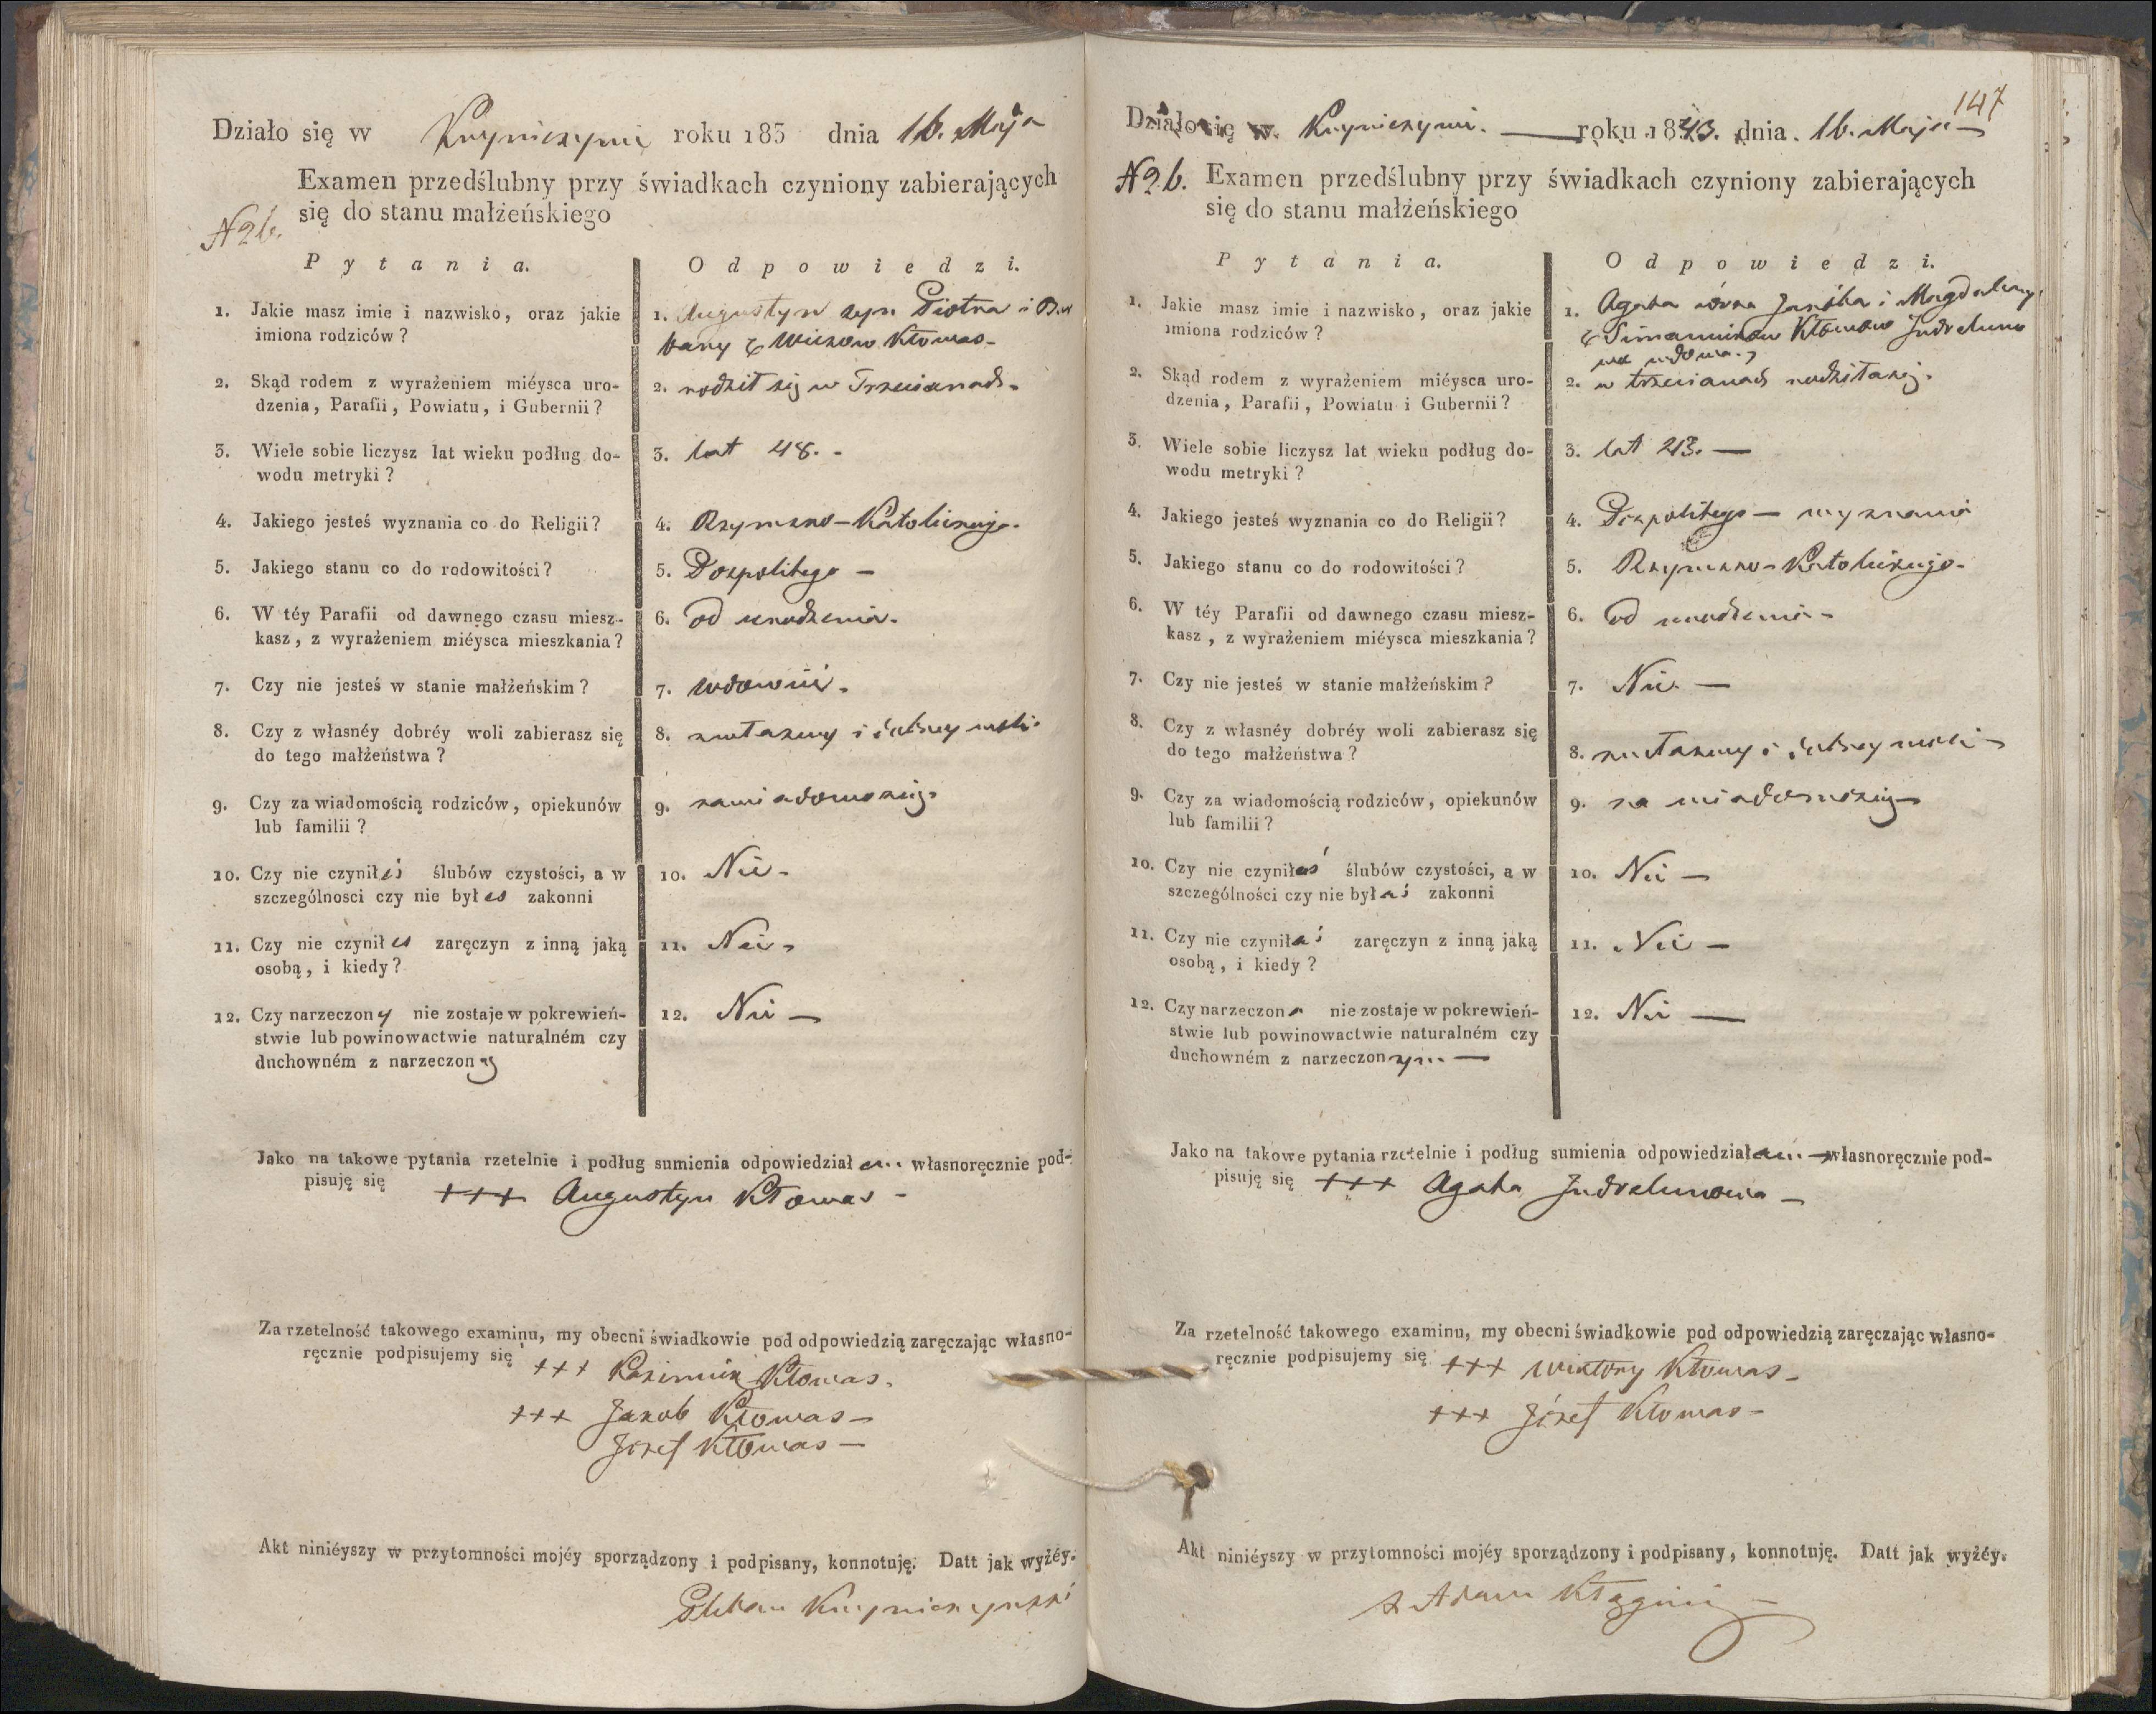 Działo się w Knyszynie roku 183 dnia 16. Maja
Examen przedślubny przy świadkach czyniony zabierających
się do stanu małżeńskiego
N 26.
Pytania.
Odpowiedzi.
1. Jakie masz imie i nazwisko, oraz jakie
imiona rodziców?
1. Augustyn syn Piotra i Bar
bary z Kłowas-
2. Skąd rodem z wyrażeniem miéysca uro-
dzenia, Parafii, Powiatu, i Gubernii?
2. rodził się w Trzcianach-
3. Wiele sobie liczysz lat wieku podług do-
wodu metryki?
3. lat 48. -
4. Jakiego jesteś wyznania co do Religii?
4. Rzymsko-Katolickiego.
5. Jakiego stanu co do rodowitości?
5. Pospolitego —
6. W téy Parafii od dawnego czasu miesz-
kasz, z wyrażeniem miéysca mieszkania?
6. od urodzenia.
7. Czy nie jesteś w stanie małżeńskim?
7. wdowiec.
8. Czy z własnéy dobréy woli zabierasz się
do tego małżeństwa?
8. z własney i dobrey woli
9. Czy za wiadomością rodziców, opiekunów
lub familii?
9. zawiadomością.
10. Czy nie czyniłeś ślubów czystości, a w
szczególnosci czy nie byłes zakonni
10. Nie-
11. Czy nie czyniłes zaręczyn z inną jaką
osobą, i kiedy?
11. Nie-
12. Czy narzeczony nie zostaje w pokrewień-
stwie lub powinowactwie naturalném czy
duchowném z narzeczoną
12. Nie —
Jako na takowe pytania rzetelnie i podług sumienia odpowiedziałem własnoręcznie pod-
pisuję się +++ Augustyn Kłowas -
Za rzetelność takowego examinu, my obecni świadkowie pod odpowiedzią zaręczając własno-
ręcznie podpisujemy się +++ Kazimierz Kłowas.
+++ Jakob Kłowas —
Jozef Kłowas —
Akt niniéyszy w przytomności mojéy sporządzony i podpisany, konnotuję. Datt jak wyżéy.
Pleban
147
Działo się w. roku 1843. dnia. 16. Maja —
N 26. Examen przedślubny przy świadkach czyniony zabierających
się do stanu małżeńskiego
Pytania.
Odpowiedzi.
1. Jakie masz imie i nazwisko, oraz jakie
imiona rodziców?
1. Agata córka Jakóba i Magdaleny
wdowa.
2. Skąd rodem z wyrażeniem miéysca uro-
dzenia, Parafii, Powiatu i Gubernii?
2. w trzcianach rodziła się.
3. Wiele sobie liczysz lat wieku podług do-
wodu metryki?
3. lat 23. —
4. Jakiego jesteś wyznania co do Religii?
4. Pospolitego — wyznania
5. Jakiego stanu co do rodowitości?
5. Rzymsko-Katolickiego-
6. W téy Parafii od dawnego czasu miesz-
kasz, z wyrażeniem miéysca mieszkania?
6. od urodzenia-
7. Czy nie jesteś w stanie małżeńskim?
7. Nie. —
8. Czy z własnéy dobréy woli zabierasz się
do tego małżeństwa?
8. z własney i dobrey woli -
9. Czy za wiadomością rodziców, opiekunów
lub familii?
9. za wiadomością
10. Czy nie czyniłaś ślubów czystości, a w
szczególności czy nie byłaś zakonni
10. Nie —
11. Czy nie czyniłaś zaręczyn z inną jaką
osobą, i kiedy?
11. Nie —
12. Czy narzeczona nie zostaje w pokrewień-
stwie lub powinowactwie naturalném czy
duchowném z narzeczonym —
12. Nie —
Jako na takowe pytania rzetelnie i podług sumienia odpowiedziałam — własnoręcznie pod-
pisuję się +++ Agata —
Za rzetelność takowego examinu, my obecni świadkowie pod odpowiedzią zaręczając własno-
ręcznie podpisujemy się +++ Wiktory Kłowas -
+++ Józef Kłowas -
Akt niniéyszy w przytomności mojéy sporządzony i podpisany, konnotuję. Datt jak wyżéy.
X Adam